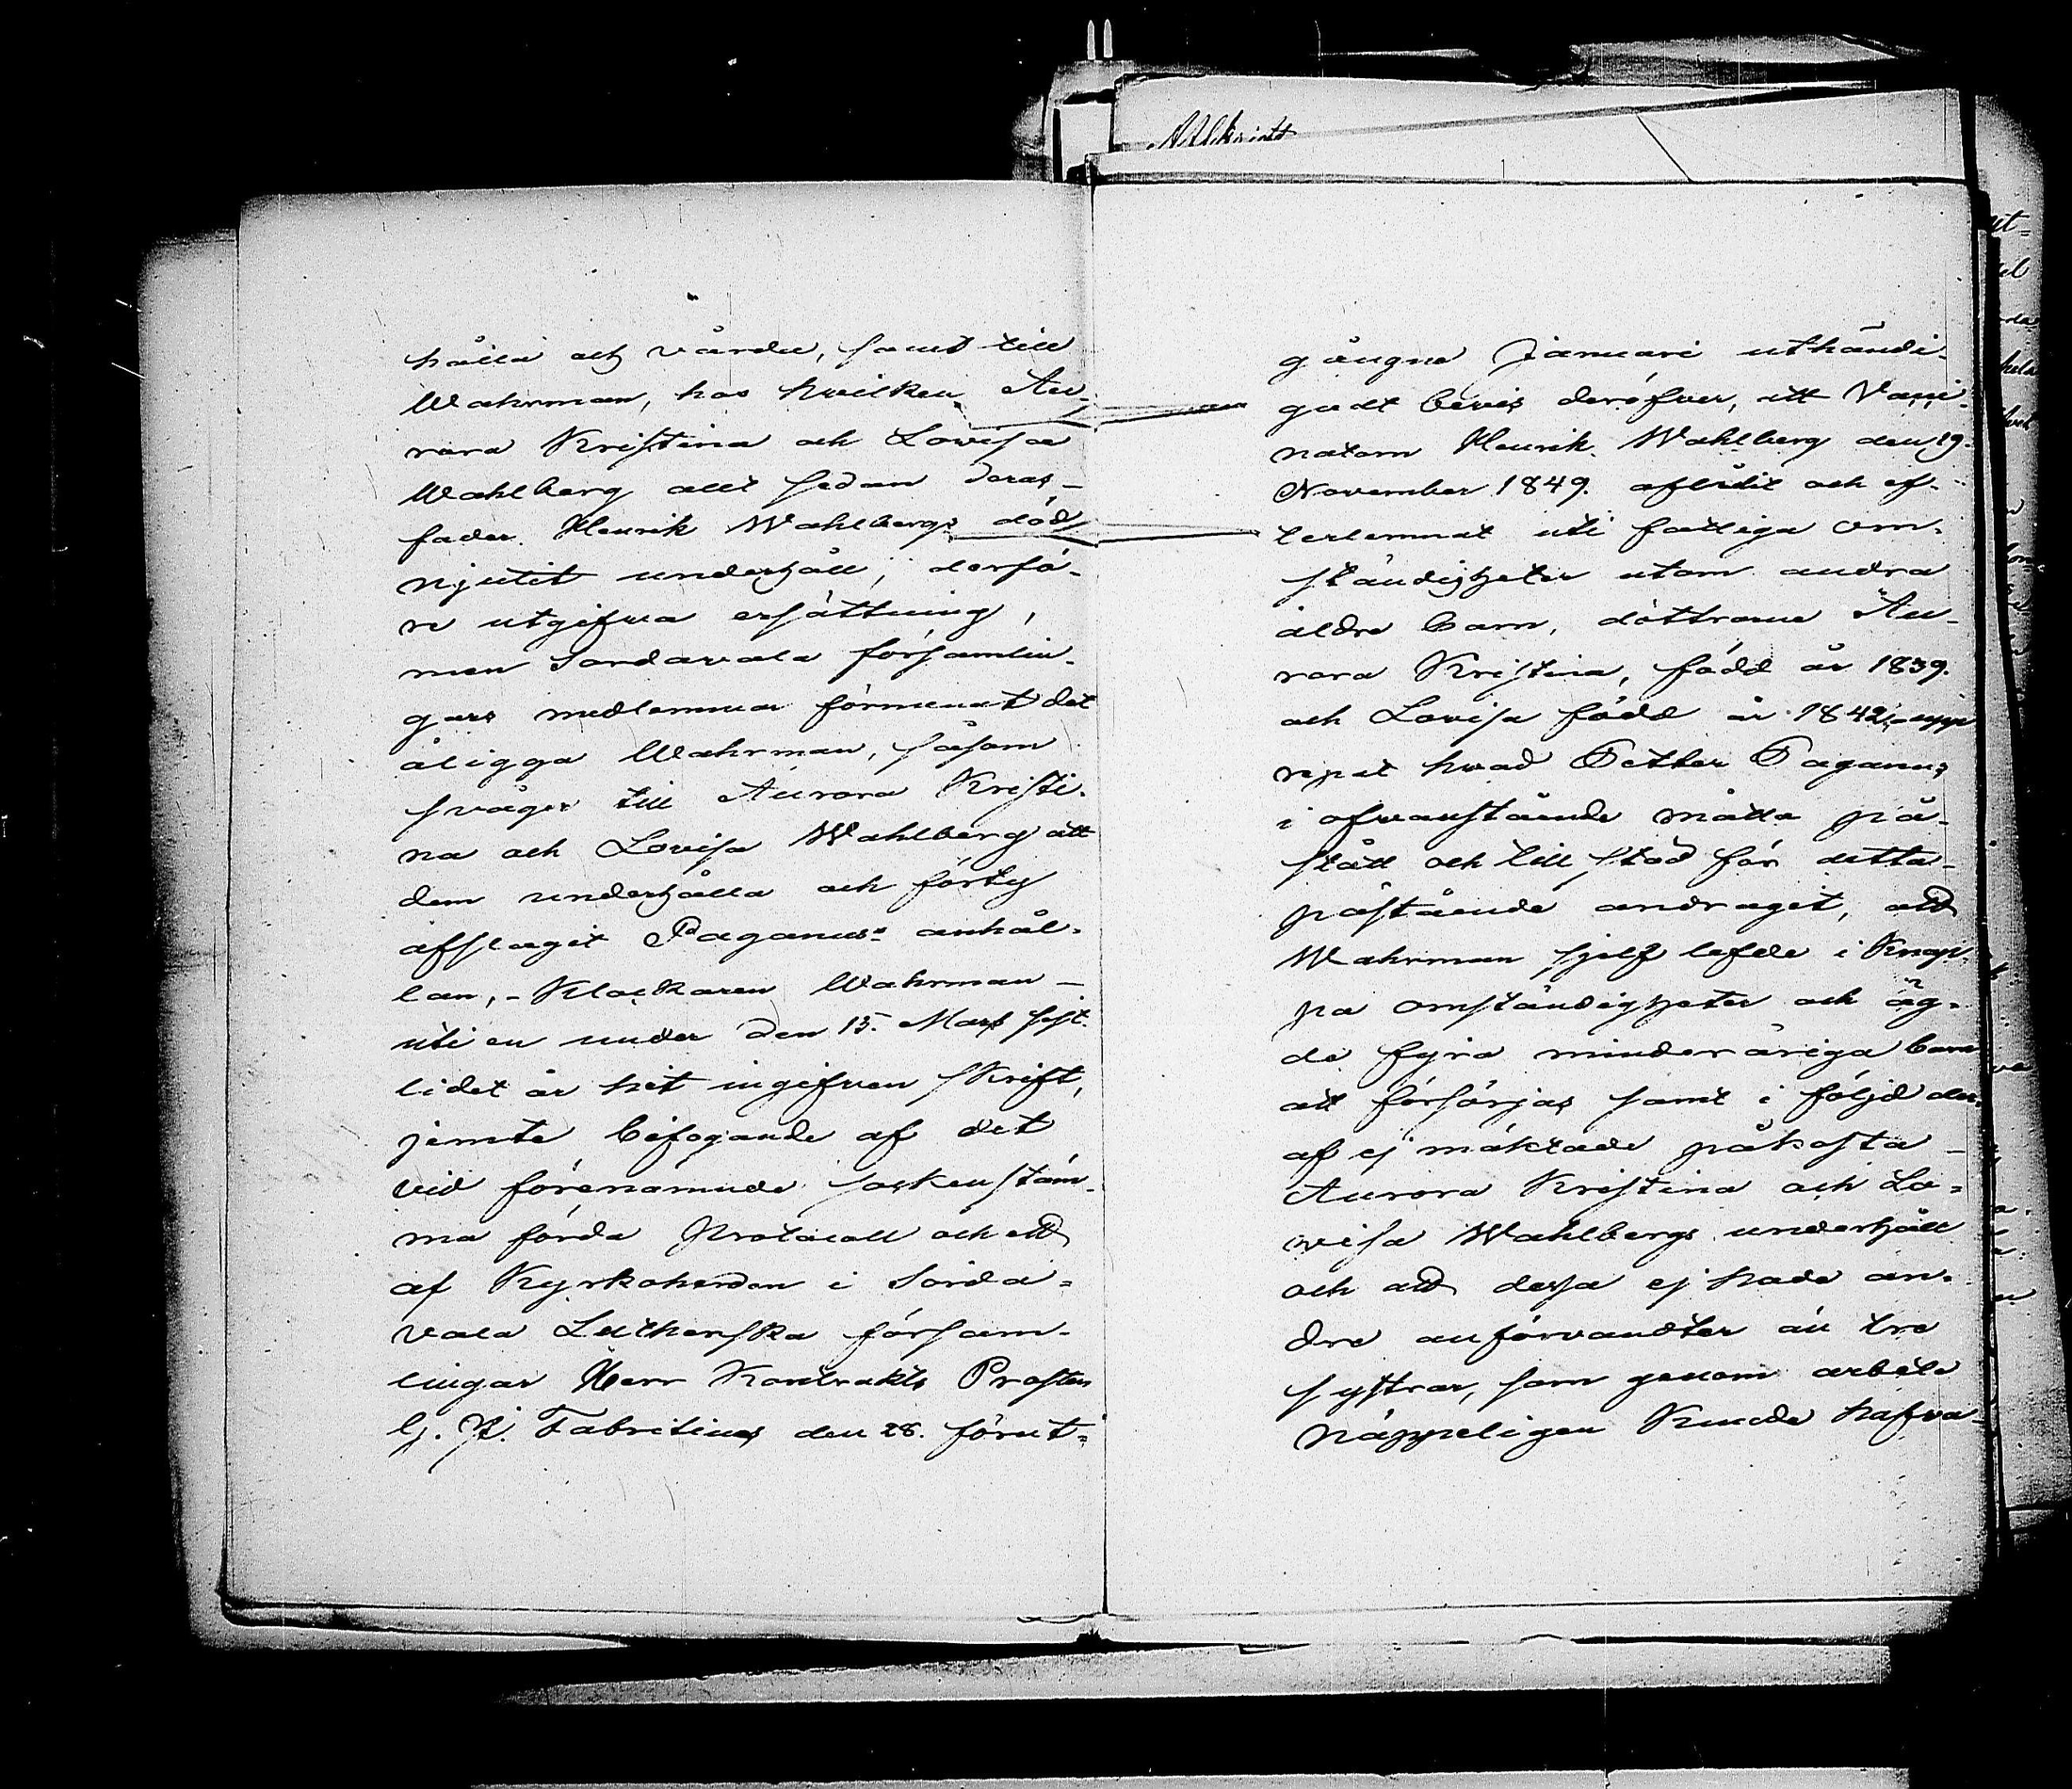 Afskrift
hålla och vårda, samt till
Wahrman, hos hvilken Au-
rora Kristina och Lovisa
Wahlberg allt sedan deras
fader Henrik Wahlbergs död
njutit underhåll, derfö-
re utgifva ersättning,
men Sordavala församlin-
gars medlemmar förment det
åligga Wahrman, såsom
svåger till Aurora Kristi-
na och Lovisa Wahlberg att
dem underhålla och förty
afslagit Paganus' anhål-
lan, - Klockaren Wahrman
uti en under den 15. Mars sist-
lidet år hit ingifven skrift,
jemte bifogande af det
vid förenämnde sockenstäm-
ma förda Protocoll och ett
af Kyrkoherden i Sorda-
vala Lutherska försam-
lingar Herr Kontrakts Prosten
G. J. Fabritius den 28. förut-
gångne Januari uthändi-
gadt bevis deröfver, att
natorn Henrik Wahlberg den 19.
November 1849. aflidit och ef-
terlemnat uti fattiga om-
ständigheter utom andra
äldre barn, döttrarne Au-
rora Kristina, född år 1839.
och Lovisa född år 1842, - upp-
repat hvad Petter Paganus
i ofvanstående måtto på-
stått och till stöd för detta
påstående andragit, att
Wahrman sjelf lefde i Knap-
pa omständigheter och äg-
de fyra minderåriga barn
att försörjas samt i följd der-
af ej mäktade påkosta
Aurora Kristina och Lo-
visa Wahlbergs underhåll
och att dessa ej hade an-
dre anförvandter än tre
systrar, som genom arbete
näppeligen kunde hafva